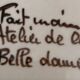 Fait main
Hélie de la
Belle dame